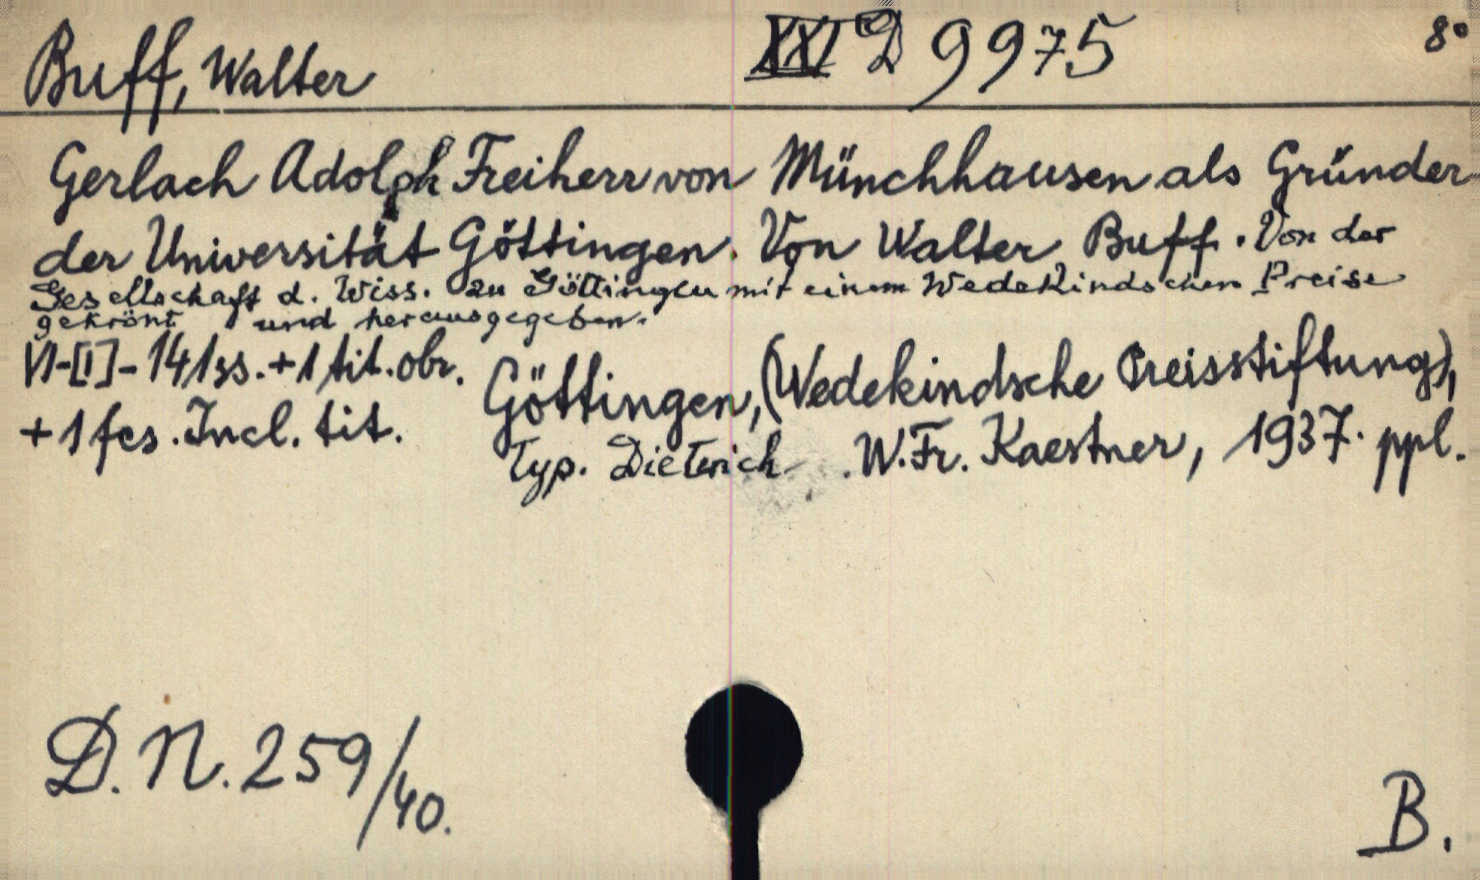 Buff, Walter XXI D 9975 8°
Gerlach Adolph Freiherr von Münchhausen als Gründer
der Universität Göttingen. Von Walter Buff. Von der
Gesellschaft d. Wiss. zu Göttingen mit einem Wedekindschen Preise
gekrönt und herausgegeben.
VI-[I]-141ss.+1 tit. obr. Göttingen, (Wedekindsche Preisstiftung),
+1 fcs. Incl. tit. Typ. Dieterich. W. Fr. Kaestner, 1937. ppl.
D. N. 259/40.
B.